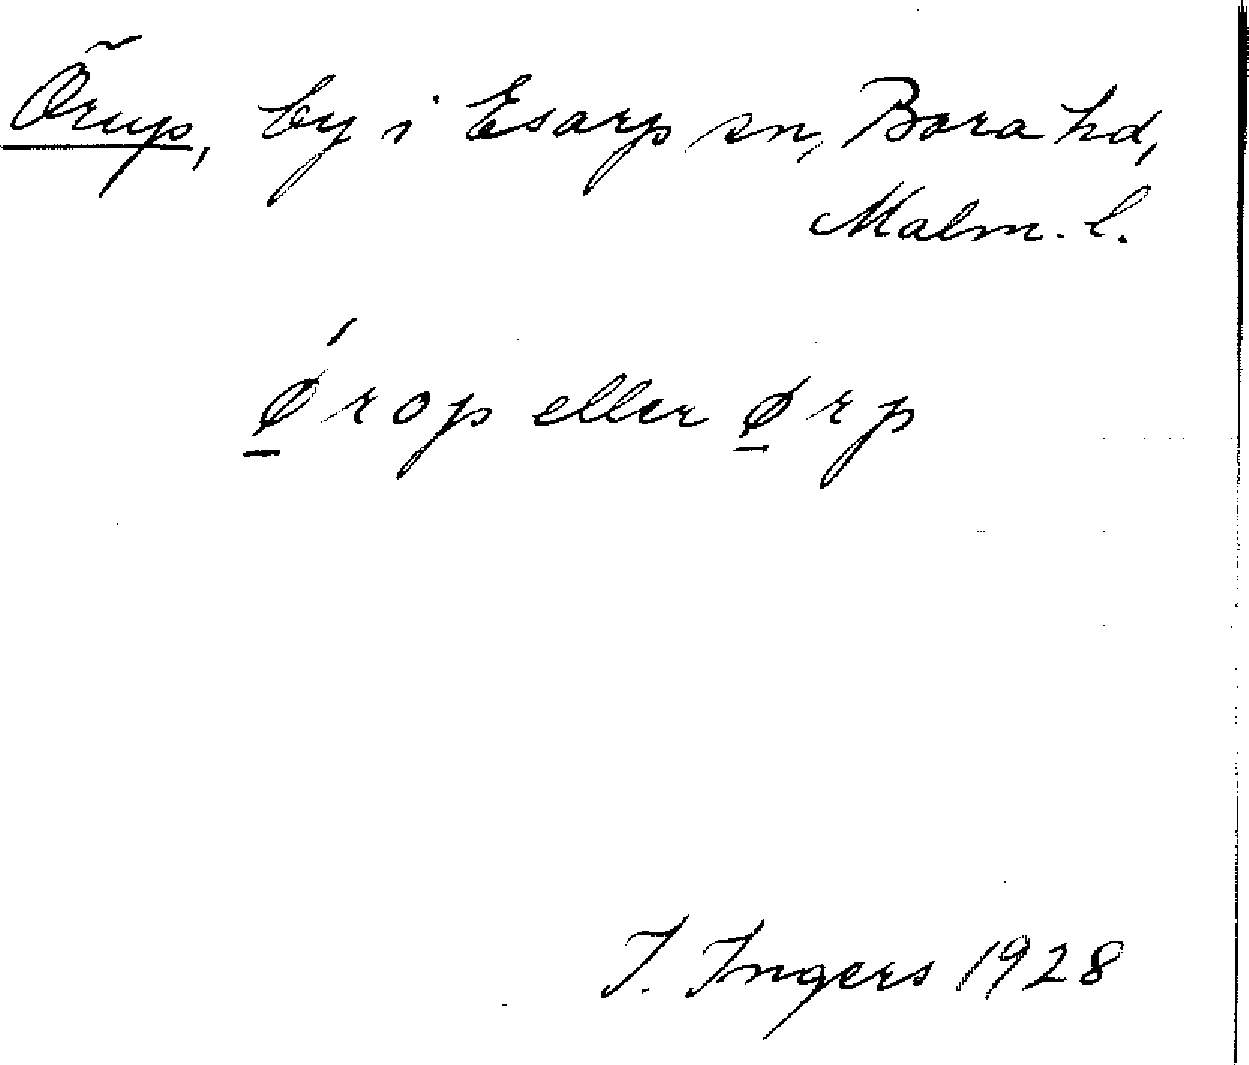 Örup, by i Esarp sn, Bara hd,
Malm. l.
ǿrop eller ørp
I. Ingers 1928